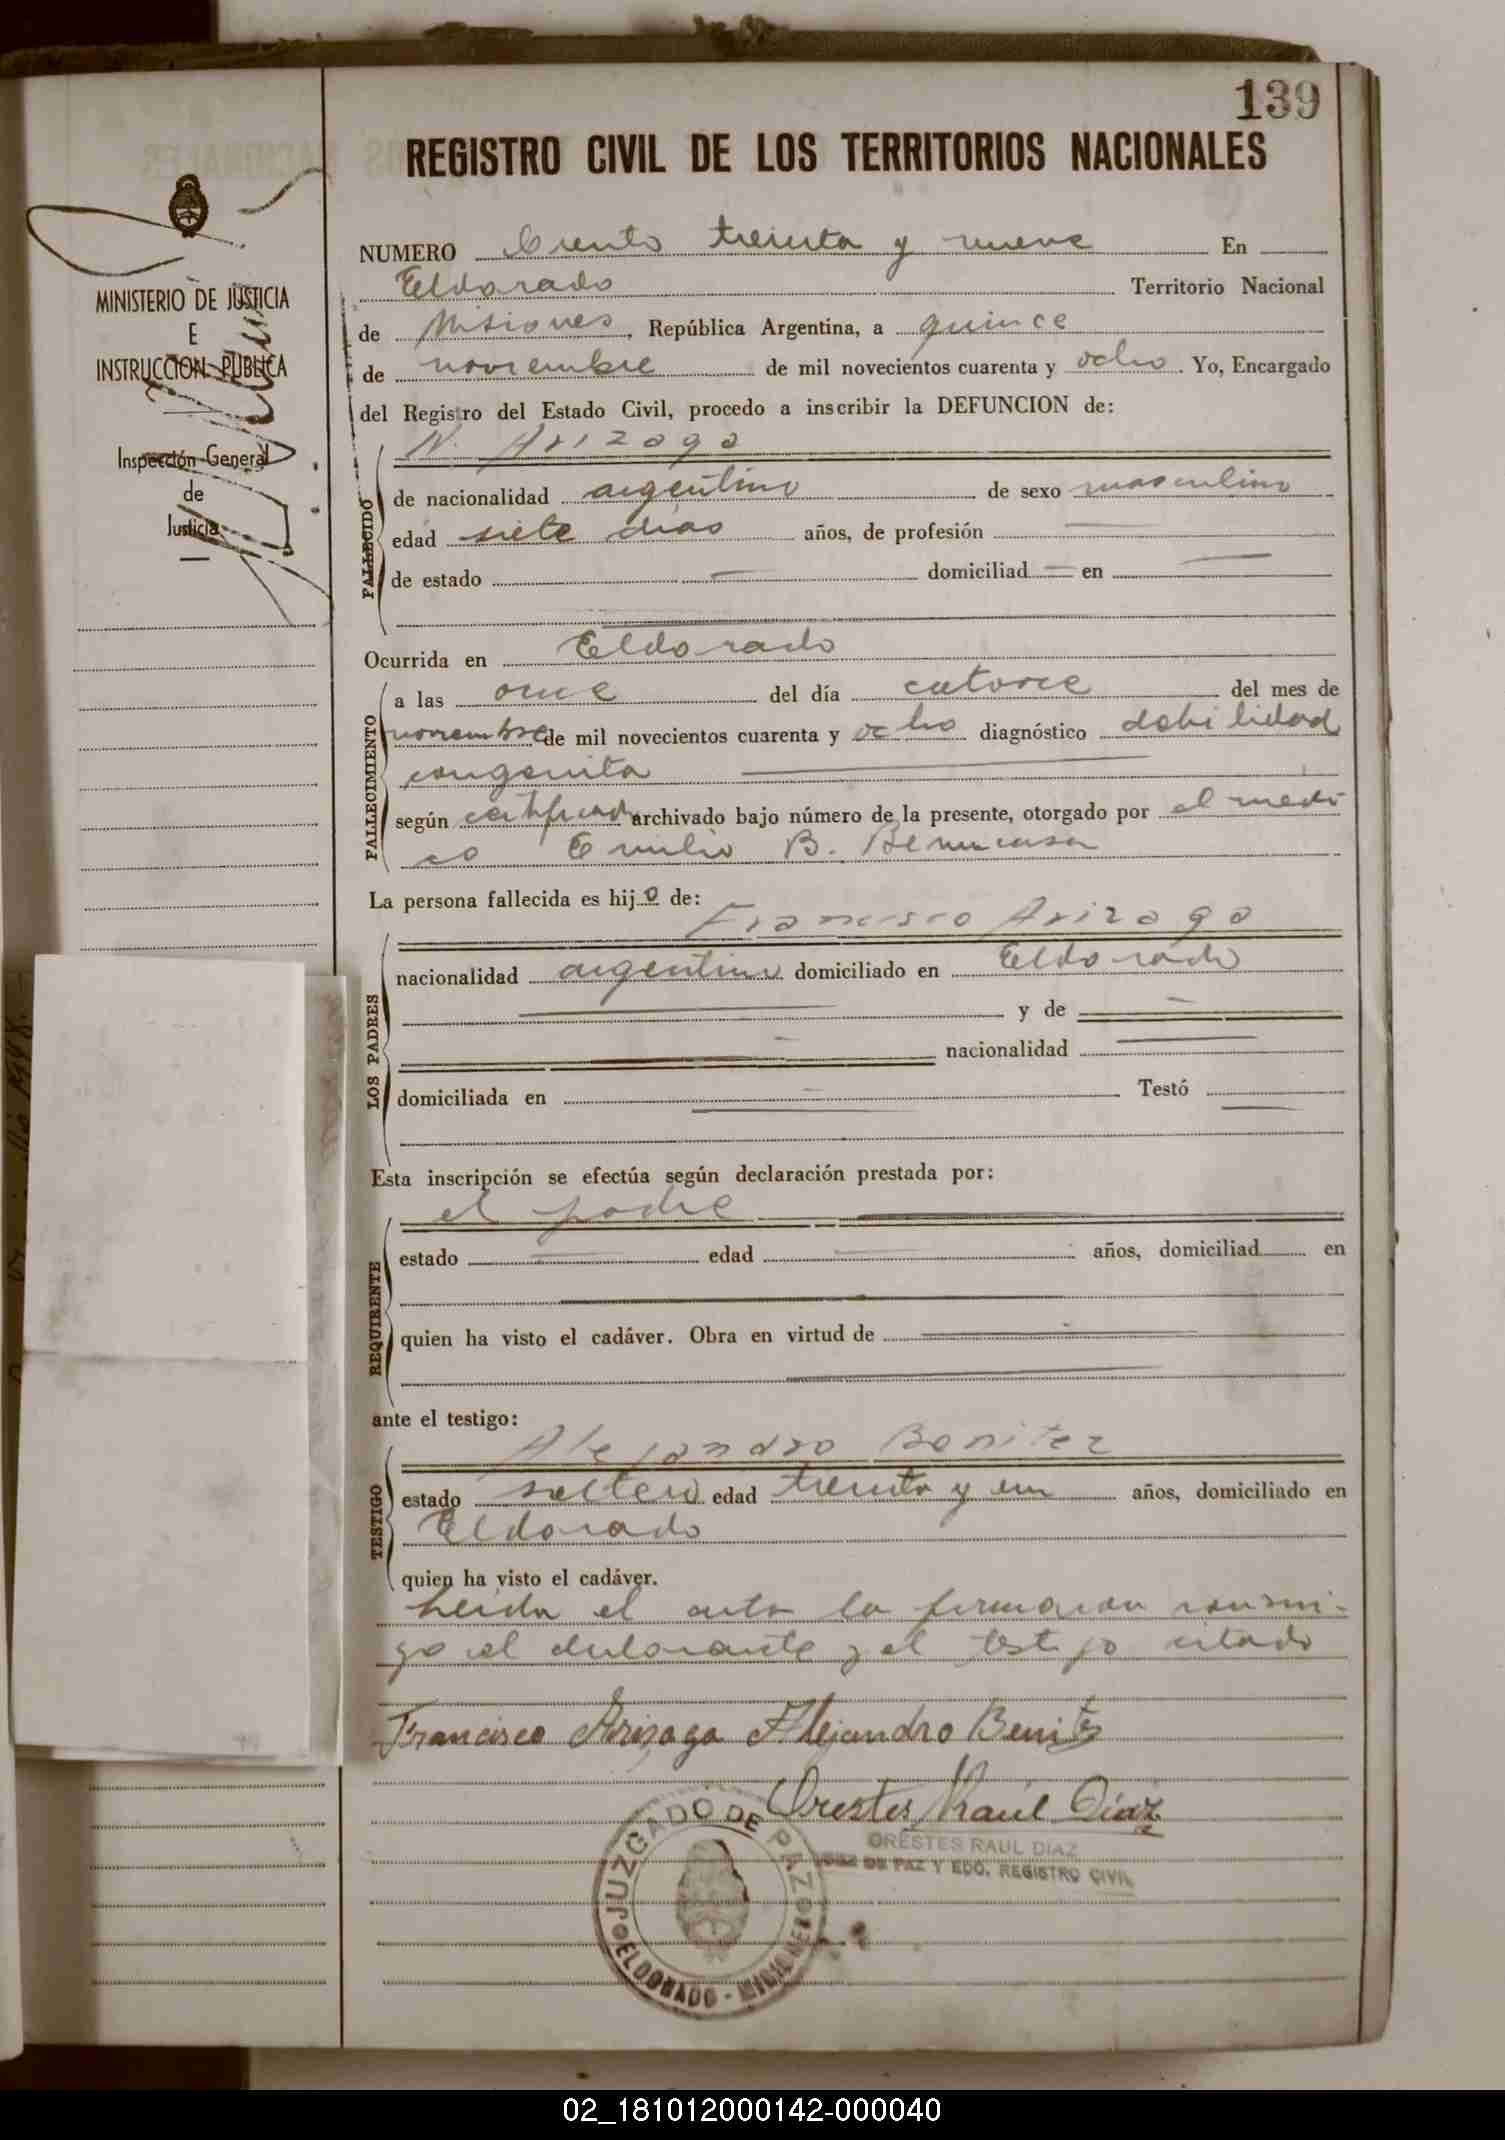 139
REGISTRO CIVIL DE LOS TERRITORIOS NACIONALES
MINISTERIO DE JUSTICIA
E
INSTRUCCION PUBLICA
Inspección General
de
Justicia
NUMERO Ciento treinta y nueve En
Eldorado Territorio Nacional
de Misiones, República Argentina, a quince
de noviembre de mil novecientos cuarenta y ocho. Yo, Encargado
del Registro del Estado Civil, procedo a inscribir la DEFUNCION de:
N. Arizaga
FALLECIDO
de nacionalidad argentino de sexo masculino
edad siete días años, de profesión
de estado domiciliad en
Ocurrida en Eldorado
FALLECIMIENTO
a las once del día catorce del mes de
noviembre de mil novecientos cuarenta y ocho diagnóstico debilidad
congenita
según certificado archivado bajo número de la presente, otorgado por el medi
co Emilio B.
La persona fallecida es hijo de:
Francisco Arizaga
LOS PADRES
nacionalidad argentino domiciliado en Eldorado
y de
nacionalidad
domiciliada en Testó
Esta inscripción se efectúa según declaración prestada por:
el padre
REQUIRENTE
estado edad años, domiciliad en
quien ha visto el cadáver. Obra en virtud de
ante el testigo:
Alejandro Benitez
TESTIGO
estado soltero edad treinta y un años, domiciliado en
Eldorado
quien ha visto el cadáver.
Leida el acta la firmaron conmi-
go el declarante y el testigo citado
Francisco Arizaga Alejandro Benites
Orestes Raúl Díaz
ORESTES RAUL DIAZ
JUEZ DE PAZ Y EDO. REGISTRO CIVIL
JUZGADO DE PAZ
ELDORADO - MISIONES
02_181012000142-000040